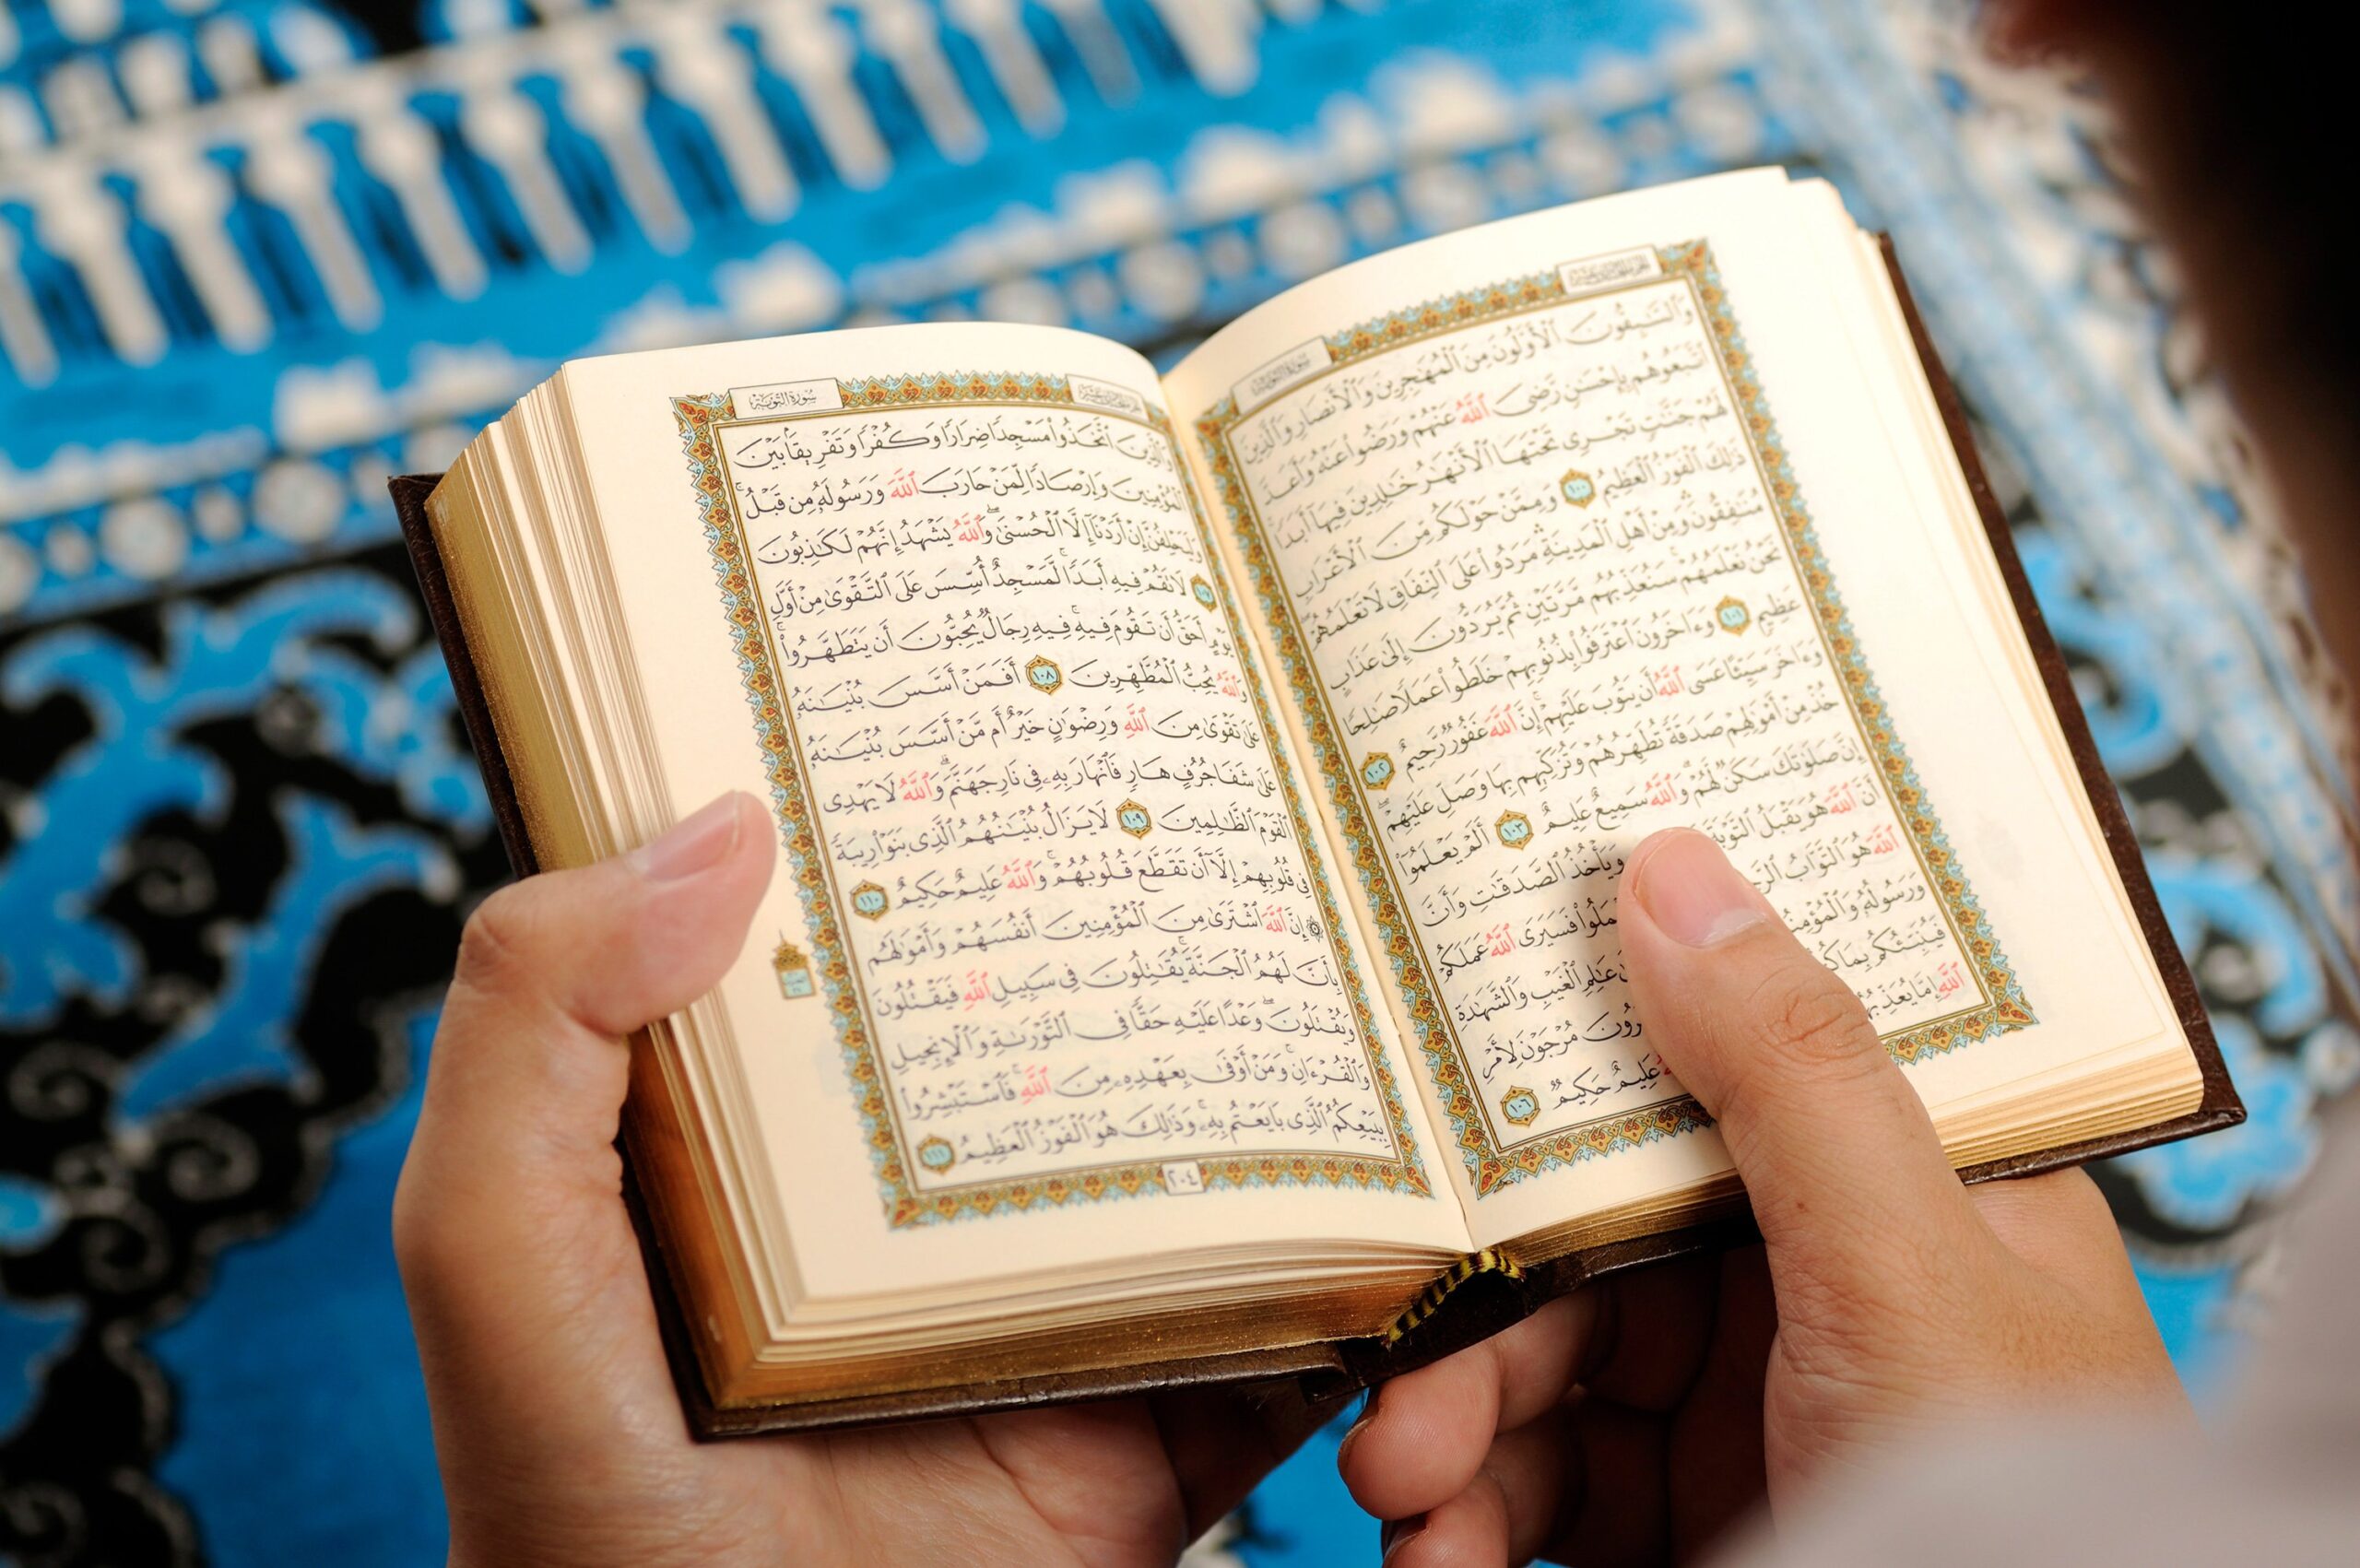 وَٱلسَّٰبِقُونَ ٱلْأَوَّلُونَ مِنَ ٱلْمُهَٰجِرِينَ وَٱلْأَنصَارِ وَٱلَّذِينَ
ٱتَّبَعُوهُم بِإِحْسَٰنٍ رَّضِىَ ٱللَّهُ عَنْهُمْ وَرَضُوا۟ عَنْهُ وَأَعَدَّ
لَهُمْ جَنَّٰتٍ تَجْرِى تَحْتَهَا ٱلْأَنْهَٰرُ خَٰلِدِينَ فِيهَآ أَبَدًا ۚ
ذَٰلِكَ ٱلْفَوْزُ ٱلْعَظِيمُ ١٠٠ وَمِمَّنْ حَوْلَكُم مِّنَ ٱلْأَعْرَابِ
مُنَٰفِقُونَ ۖ وَمِنْ أَهْلِ ٱلْمَدِينَةِ ۖ مَرَدُوا۟ عَلَى ٱلنِّفَاقِ لَا تَعْلَمُهُمْ ۖ
نَحْنُ نَعْلَمُهُمْ ۚ سَنُعَذِّبُهُم مَّرَّتَيْنِ ثُمَّ يُرَدُّونَ إِلَىٰ عَذَابٍ
عَظِيمٍ ١٠١ وَءَاخَرُونَ ٱعْتَرَفُوا۟ بِذُنُوبِهِمْ خَلَطُوا۟ عَمَلًا صَٰلِحًا
وَءَاخَرَ سَيِّئًا عَسَى ٱللَّهُ أَن يَتُوبَ عَلَيْهِمْ ۚ إِنَّ ٱللَّهَ غَفُورٌ رَّحِيمٌ ١٠٢
خُذْ مِنْ أَمْوَٰلِهِمْ صَدَقَةً تُطَهِّرُهُمْ وَتُزَكِّيهِم بِهَا وَصَلِّ عَلَيْهِمْ ۖ
إِنَّ صَلَوٰتَكَ سَكَنٌ لَّهُمْ ۗ وَٱللَّهُ سَمِيعٌ عَلِيمٌ ١٠٣ أَلَمْ يَعْلَمُوٓا۟
أَنَّ ٱللَّهَ هُوَ يَقْبَلُ ٱلتَّوْبَةَ وَيَأْخُذُ ٱلصَّدَقَٰتِ وَأَنَّ
ٱللَّهَ هُوَ ٱلتَّوَّابُ فَسَيَرَى ٱللَّهُ عَمَلَكُمْ
وَرَسُولُهُۥ عَٰلِمِ ٱلْغَيْبِ وَٱلشَّهَٰدَةِ
فَيُنَبِّئُكُم بِمَا مُرْجَوْنَ لِأَمْرِ
ٱللَّهِ إِمَّا يُعَذِّبُهُمْ عَلِيمٌ حَكِيمٌ ١٠٦
سُورَةُ التَّوْبَةِ
وَٱلَّذِينَ ٱتَّخَذُوا۟ مَسْجِدًا ضِرَارًا وَكُفْرًا وَتَفْرِيقًۢا بَيْنَ
ٱلْمُؤْمِنِينَ وَإِرْصَادًا لِّمَنْ حَارَبَ ٱللَّهَ وَرَسُولَهُۥ مِن قَبْلُ ۚ
وَلَيَحْلِفُنَّ إِنْ أَرَدْنَآ إِلَّا ٱلْحُسْنَىٰ ۖ وَٱللَّهُ يَشْهَدُ إِنَّهُمْ لَكَٰذِبُونَ
١٠٧ لَا تَقُمْ فِيهِ أَبَدًا ۚ لَّمَسْجِدٌ أُسِّسَ عَلَى ٱلتَّقْوَىٰ مِنْ أَوَّلِ
يَوْمٍ أَحَقُّ أَن تَقُومَ فِيهِ ۚ فِيهِ رِجَالٌ يُحِبُّونَ أَن يَتَطَهَّرُوا۟ ۚ
وَٱللَّهُ يُحِبُّ ٱلْمُطَّهِّرِينَ ١٠٨ أَفَمَنْ أَسَّسَ بُنْيَٰنَهُۥ
عَلَىٰ تَقْوَىٰ مِنَ ٱللَّهِ وَرِضْوَٰنٍ خَيْرٌ أَم مَّنْ أَسَّسَ بُنْيَٰنَهُۥ
عَلَىٰ شَفَا جُرُفٍ هَارٍ فَٱنْهَارَ بِهِۦ فِى نَارِ جَهَنَّمَ ۗ وَٱللَّهُ لَا يَهْدِى
ٱلْقَوْمَ ٱلظَّٰلِمِينَ ١٠٩ لَا يَزَالُ بُنْيَٰنُهُمُ ٱلَّذِى بَنَوْا۟ رِيبَةً
فِى قُلُوبِهِمْ إِلَّآ أَن تَقَطَّعَ قُلُوبُهُمْ ۗ وَٱللَّهُ عَلِيمٌ حَكِيمٌ ١١٠
۞ إِنَّ ٱللَّهَ ٱشْتَرَىٰ مِنَ ٱلْمُؤْمِنِينَ أَنفُسَهُمْ وَأَمْوَٰلَهُم
بِأَنَّ لَهُمُ ٱلْجَنَّةَ ۚ يُقَٰتِلُونَ فِى سَبِيلِ ٱللَّهِ فَيَقْتُلُونَ
وَيُقْتَلُونَ ۖ وَعْدًا عَلَيْهِ حَقًّا فِى ٱلتَّوْرَىٰةِ وَٱلْإِنجِيلِ
وَٱلْقُرْءَانِ ۚ وَمَنْ أَوْفَىٰ بِعَهْدِهِۦ مِنَ ٱللَّهِ ۚ فَٱسْتَبْشِرُوا۟
بِبَيْعِكُمُ ٱلَّذِى بَايَعْتُم بِهِۦ ۚ وَذَٰلِكَ هُوَ ٱلْفَوْزُ ٱلْعَظِيمُ ١١١
٢٠٤